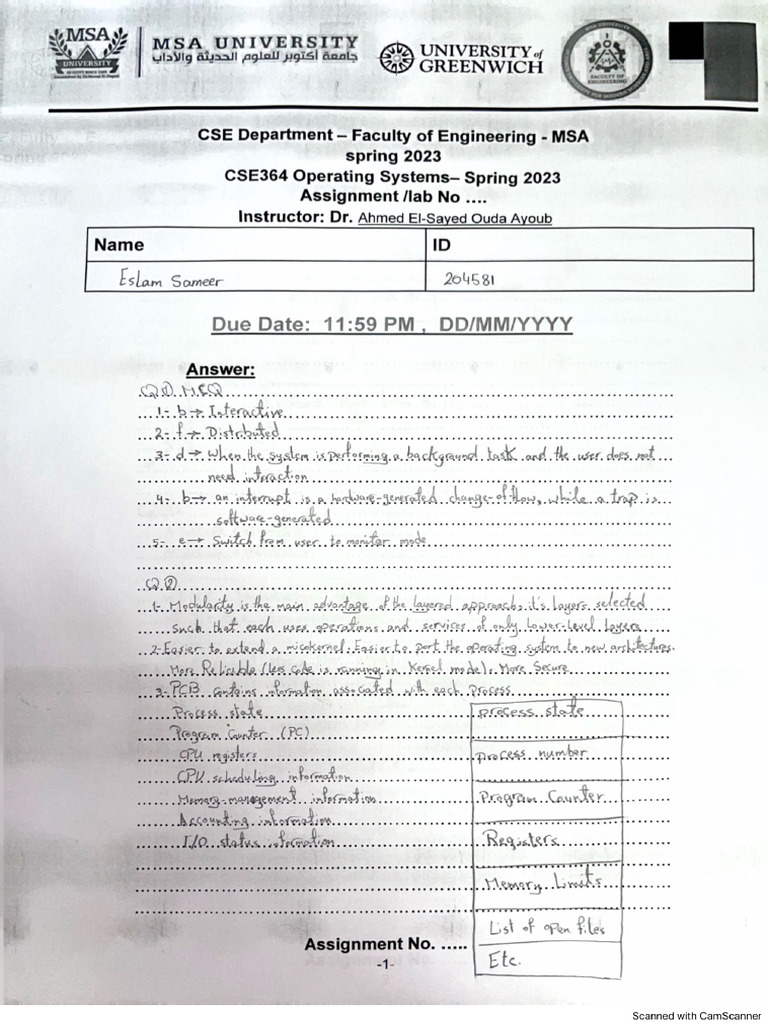 MSA
UNIVERSITY
MSA UNIVERSITY
جامعة أكتوبر للعلوم الحديثة والآداب
UNIVERSITY of
GREENWICH
FACULTY OF
ENGINEERING
CSE Department – Faculty of Engineering - MSA
spring 2023
CSE364 Operating Systems– Spring 2023
Assignment /lab No ....
Instructor: Dr. Ahmed El-Sayed Ouda Ayoub
Name ID
Eslam Sameer 204581
Due Date: 11:59 PM , DD/MM/YYYY
Answer:
Q1 MCQ
1- b → Interactive
2- f → Distributed
3- d → When the system is performing a background task and the user does not
need interaction
4- b → an interrupt is a hardware-generated change-of-flow, while a trap is
software-generated
5- e → Switch from user to monitor mode
Q2
1- Modularity is the main advantage of the layered approach, it's layers selected
such that each uses operations and services of only lower-level layers
2- Easier to extend a microkernel. Easier to port the operating system to new architectures.
More Reliable (less code is running in Kernel mode). More Secure
3- PCB contains information associated with each process
Process state
Program Counter (PC)
CPU registers
CPU scheduling information
Memory-management information
Accounting information
I/O status information
process state
process number
Program Counter
Registers
Memory Limits
List of open files
Etc.
Assignment No. .....
-1-
Scanned with CamScanner